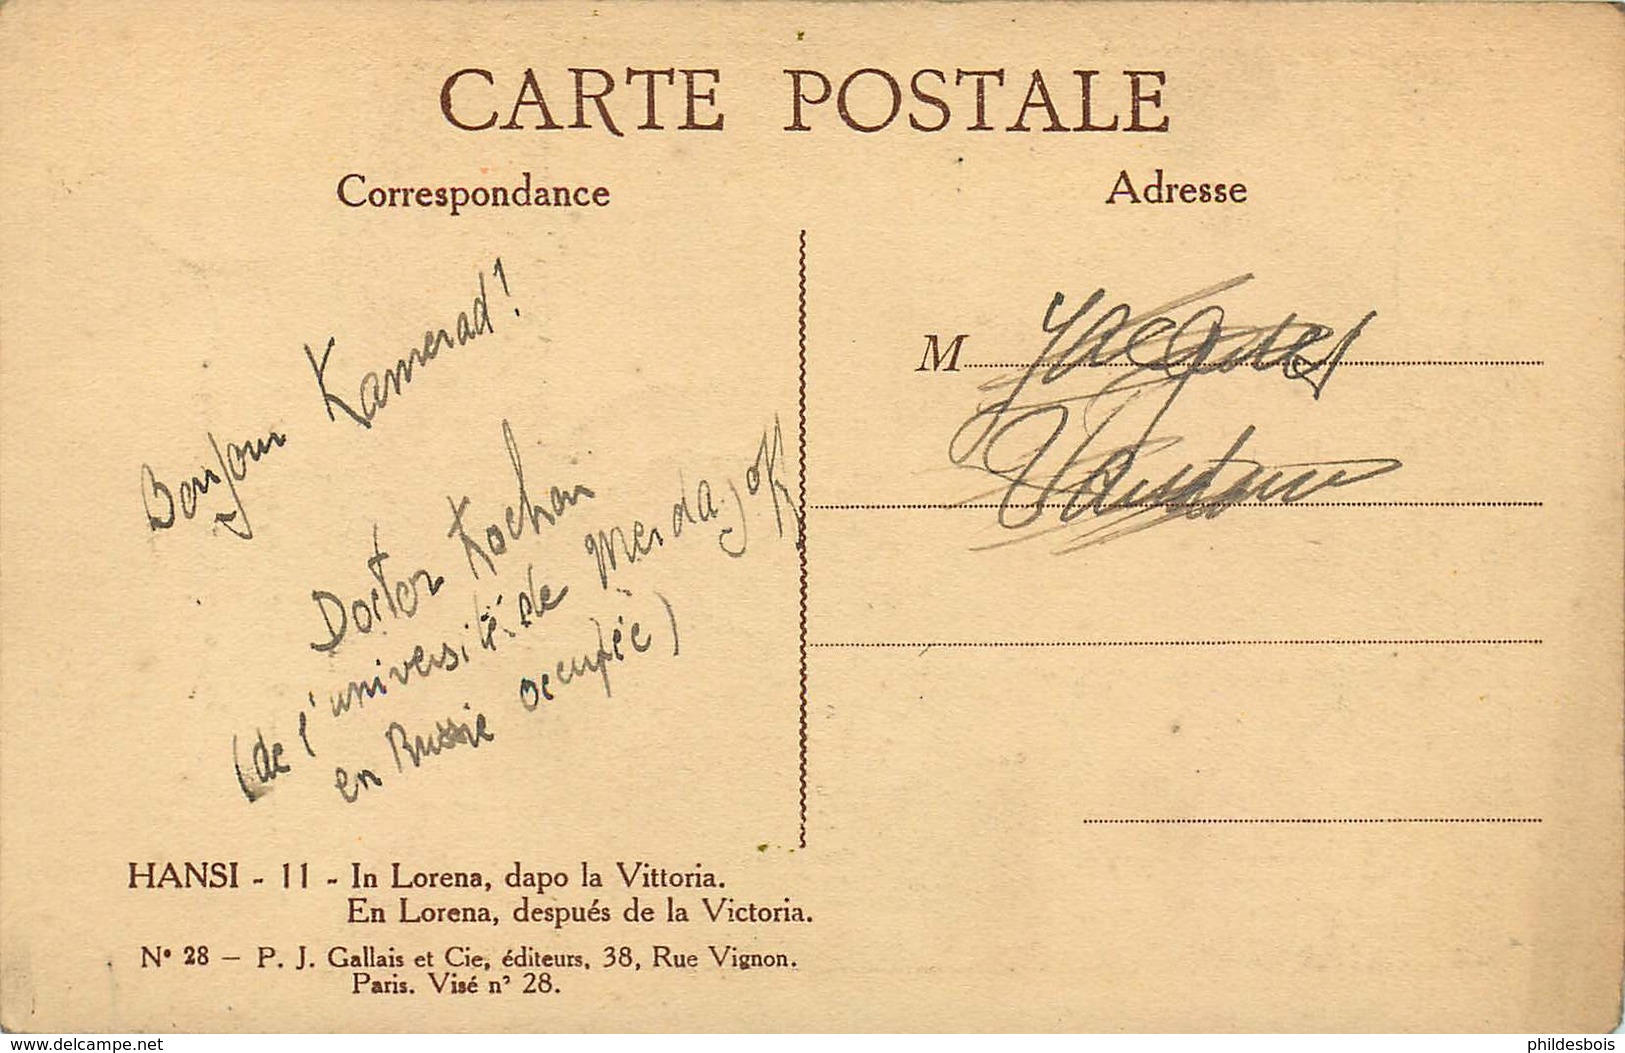 CARTE POSTALE
Correspondance
Adresse
Bonjour Kamerad!
Doctor Kochon
(de l'université de Merdajoff
en Russie occupée)
M
Jacques
HANSI - 11 - In Lorena, dapo la Vittoria.
En Lorena, después de la Victoria.
N° 28 — P. J. Gallais et Cie, éditeurs, 38, Rue Vignon.
Paris. Visé n° 28.
www.delcampe.net
phildesbois